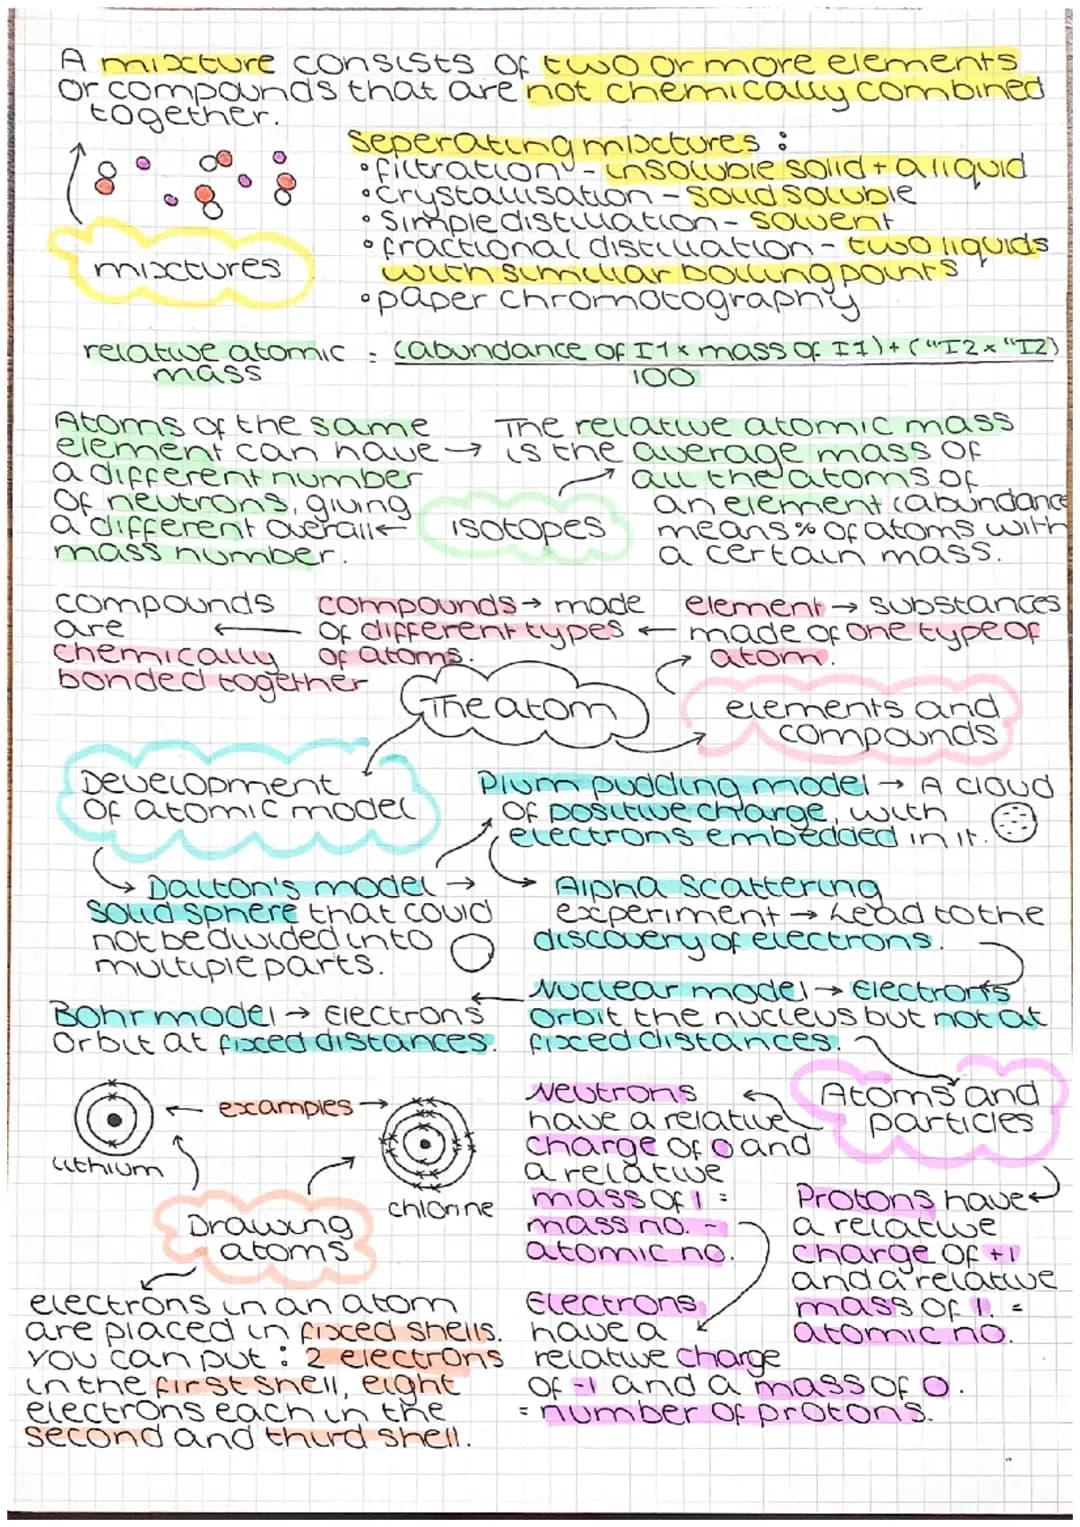 A mixture consists of two or more elements
or compounds that are not chemically combined
together.
Seperating mixtures :
• filtration - insoluble solid + a liquid
• crystallisation - solid soluble
• simple distillation - solvent
• fractional distillation - two liquids
with similiar boiling points
• paper chromotography
mixtures
relative atomic mass = (abundance of I1 x mass of I1) + ("I2 x "I2)
100
Atoms of the same
element can have →
a different number
of neutrons, giving
a different overall ←
mass number.
isotopes
The relative atomic mass
is the average mass of
all the atoms of
an element (abundance
means % of atoms with
a certain mass.
compounds
are
chemically
bonded together
compounds → made
of different types
of atoms.
element → substances
made of one type of
atom.
The atom
elements and
compounds
Development
of atomic model
Plum pudding model → A cloud
of positive charge, with
electrons embedded in it.
Dalton's model →
solid sphere that could
not be divided into
multiple parts.
Alpha Scattering
experiment → Lead to the
discovery of electrons.
Nuclear model → Electrons
orbit the nucleus but not at
fixed distances.
Bohr model → Electrons
orbit at fixed distances.
examples
lithium
chlorine
Drawing
atoms
electrons in an atom
are placed in fixed shells.
You can put : 2 electrons
in the first shell, eight
electrons each in the
second and third shell.
Atoms and
particles
Neutrons
have a relative
charge of 0 and
a relative
mass of 1 =
mass no. -
atomic no.
Protons have
a relative
charge of +1
and a relative
mass of 1. =
atomic no.
Electrons
have a
relative charge
of -1 and a mass of 0.
= number of protons.